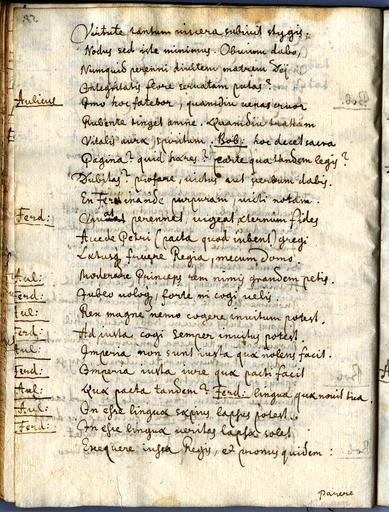 32
Virtute tantum misera subivit stygis:
Nodus sed iste minimus. Obvium dabo,
Nunquid perenni divitem matrem Dei
Integritatis flore servatam putas?
Aulicus Imo hoc fatebor, quamdiu venas cruor
Rubente tinget amne. Quamdiu trattam
Vitalis aura, spiritum. Bob: hoc decet sacra
Pagina? quid haeres? parte qua tandem legis?
Dubitas? profare, victus aut herbam dabis.
En Ferdinande purpuram, vicli notam.
Ferd: perennet, vigeat aeternum fides
Accede Petri (pacta quod iubent) gregi
fruere Regia, mecum domo.
Aul: Moderare Princeps rem nimis grandem petis.
Ferd: Iubeo volog, forte ni cogi velis
Aul: Rex magne nemo cogere invitum potest.
Ferd: Ad iusta cogi semper invitus potest
Aul: Imperia non sunt iusta qua nolens facit.
Ferd: Imperia iusta iure qua pacti facit
Aul: Qua pacta tandem? Ferd: lingua qua novit tua.
Aul: In esse lingua saepius lapsus potest.
Ferd: In esse lingua veritas lapsa solet
Exequere iussa Regis, et pronus quidem: